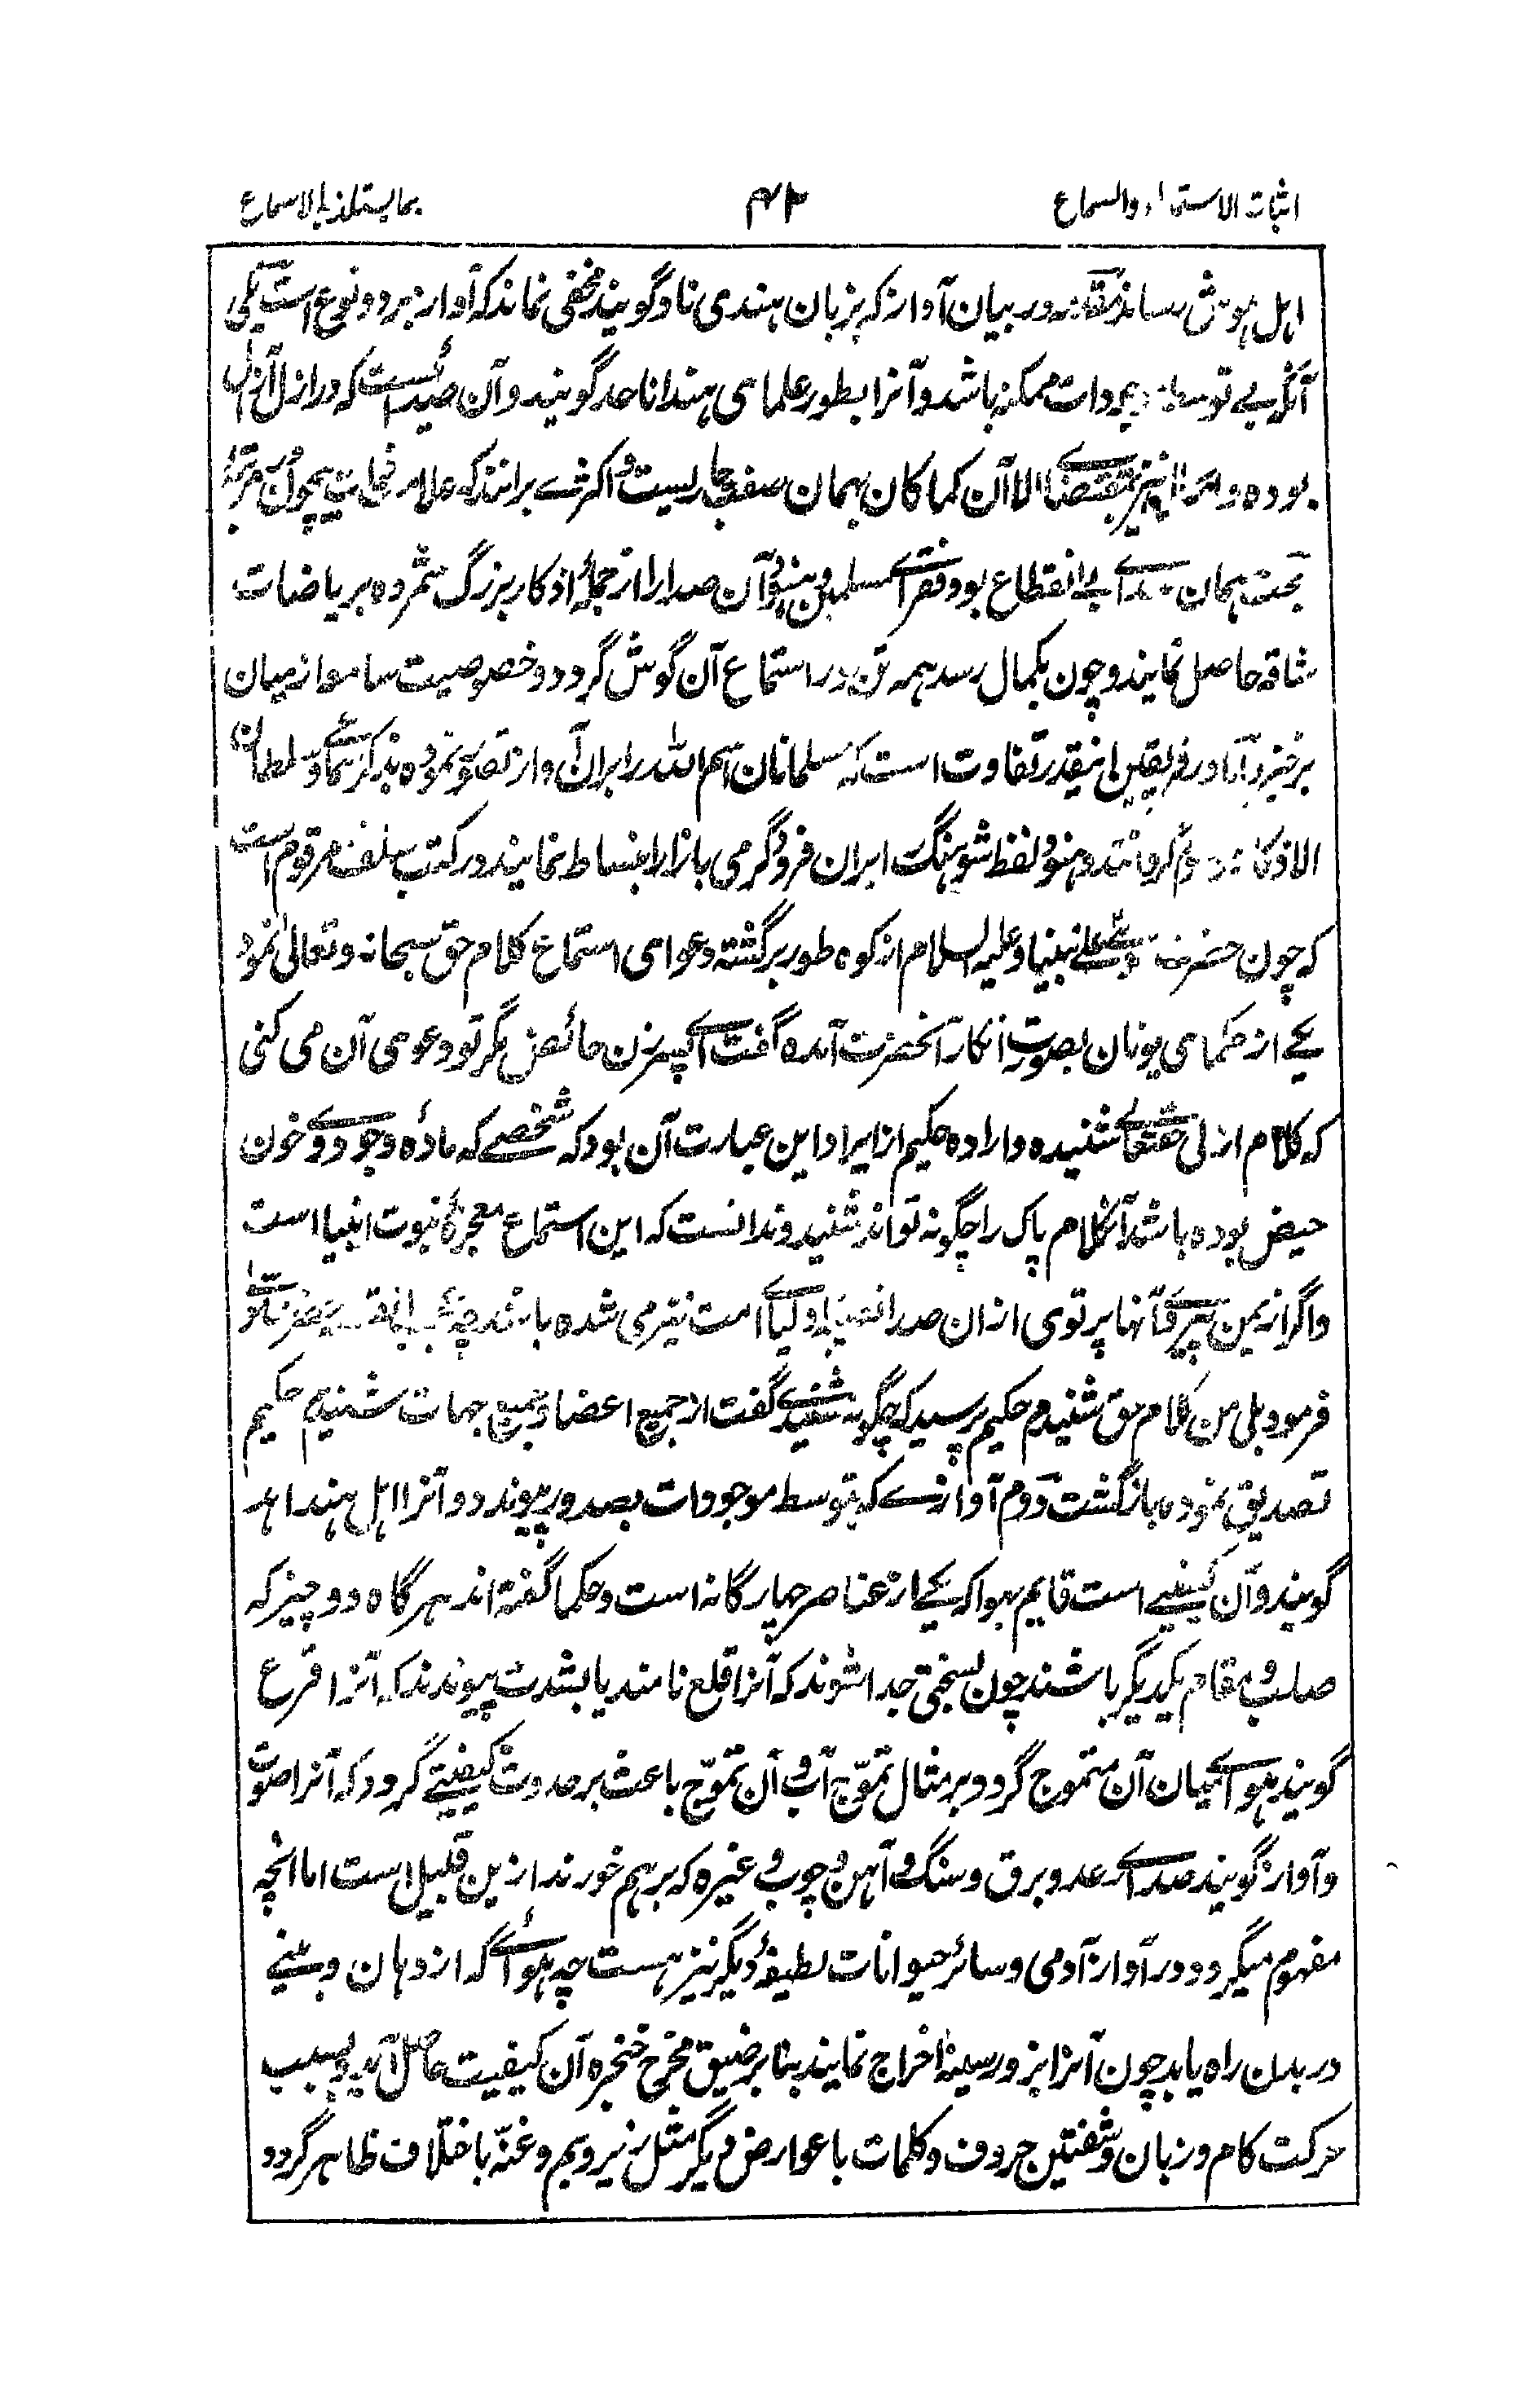 اثبات الاستماع والسماع
۴۲
بما یستلذ به الاسماع
اہل ہوش رساند مقدمہ در بیان آواز کہ بزبان ہندی ناد گویند مخفی نماند کہ آواز بر دو نوع است یکی
آنکہ بے توسط موجودات ممکنہ باشد و آنرا بطور علمای ہند اناحد گویند و آن صدائیست کہ در ازل الآزال
بودہ و بمقتضائے الآن کما کان بہمان صفت جاریست و اکثرے برانند کہ
ہمان صدائے بے انقطاع بود فقرائے مسلمین و ہنود آن صدا را از جملہ اذکار بزرگ شمردہ بریاضات
شاقہ حاصل نمایند و چون بکمال رسد ہمہ تن در استماع آن گوش گردد و خصوصیت سامعہ از میان
برخیزد اما در فریقین اینقدر تفاوت است کہ مسلمانان اسم اللہ را بران آواز تصور نمودہ بذکر سلطان
الاذکار موسوم گردانند و ہنود لفظ شوہنگ بران فزود گرمی بازار انبساط نمایند در کتب سلف مرقوم است
کہ چون حضرت موسیٰ علیٰ نبینا و علیہ السلام از کوہ طور برگشتہ دعوای استماع کلام حق سبحانہ و تعالیٰ نمود
یکے از حکمای یونان بصورت انکار آنحضرت آمدہ گفت اے پسر زن حائض مگر تو دعوی آن می کنی
کہ کلام ازلی حقتعالیٰ شنیدہ و ارادہ حکیم از ایراد این عبارت آن بود کہ شخصے کہ مادۂ وجود وے خون
حیض بودہ باشد آن کلام پاک را چگونہ تواند شنید و ندانست کہ این استماع معجزۂ نبوت انبیا است
و اگر از یمن پیروی آنہا پرتوی از ان صدا نصیب اولیائے امت نیز می شدہ باشد چہ عجب
فرمود بلی من کلام حق شنیدم حکیم پرسید کہ چگونہ شنیدے گفت از جمیع اعضا و جمیع جہات شنیدم حکیم
تصدیق نمودہ بازگشت دوم آوازے کہ بتوسط موجودات بصدور پیوندد و آنرا اہل ہند اہد
گویند و آن کیفیتے است قایم بہوا کہ یکے از عناصر چہارگانہ است و حکما گفتہ اند ہرگاہ دو چیز کہ
صلب و مقاوم یکدیگر باشند چون بسختی جدا شوند کہ آنرا قلع نامند یا بشدت پیوندند کہ آنرا قرع
گویند ہوائے میان آن متموج گردد بر مثال تموّج آب و آن تموّج باعث بر حدوث کیفیتے گردد کہ آنرا صوت
و آواز گویند صدائے رعد و برق و سنگ و آہن و چوب و غیرہ کہ برہم خورند ازین قبیل است اما انچہ
مفہوم میگردد در آواز آدمی و سائر حیوانات لطیفۂ دیگر نیز ہست چہ ہوائے کہ از دہان و بینے
در بدن راہ یابد چون آنرا بزور سینہ اخراج نمایند بنا بر ضیق مخرج حنجرہ آن کیفیت حاصل آید و بسبب
حرکت کام و زبان و شفتین حروف و کلمات با عوارض دیگر مثل زیر و بم و غنّہ باختلاف ظاہر گردد